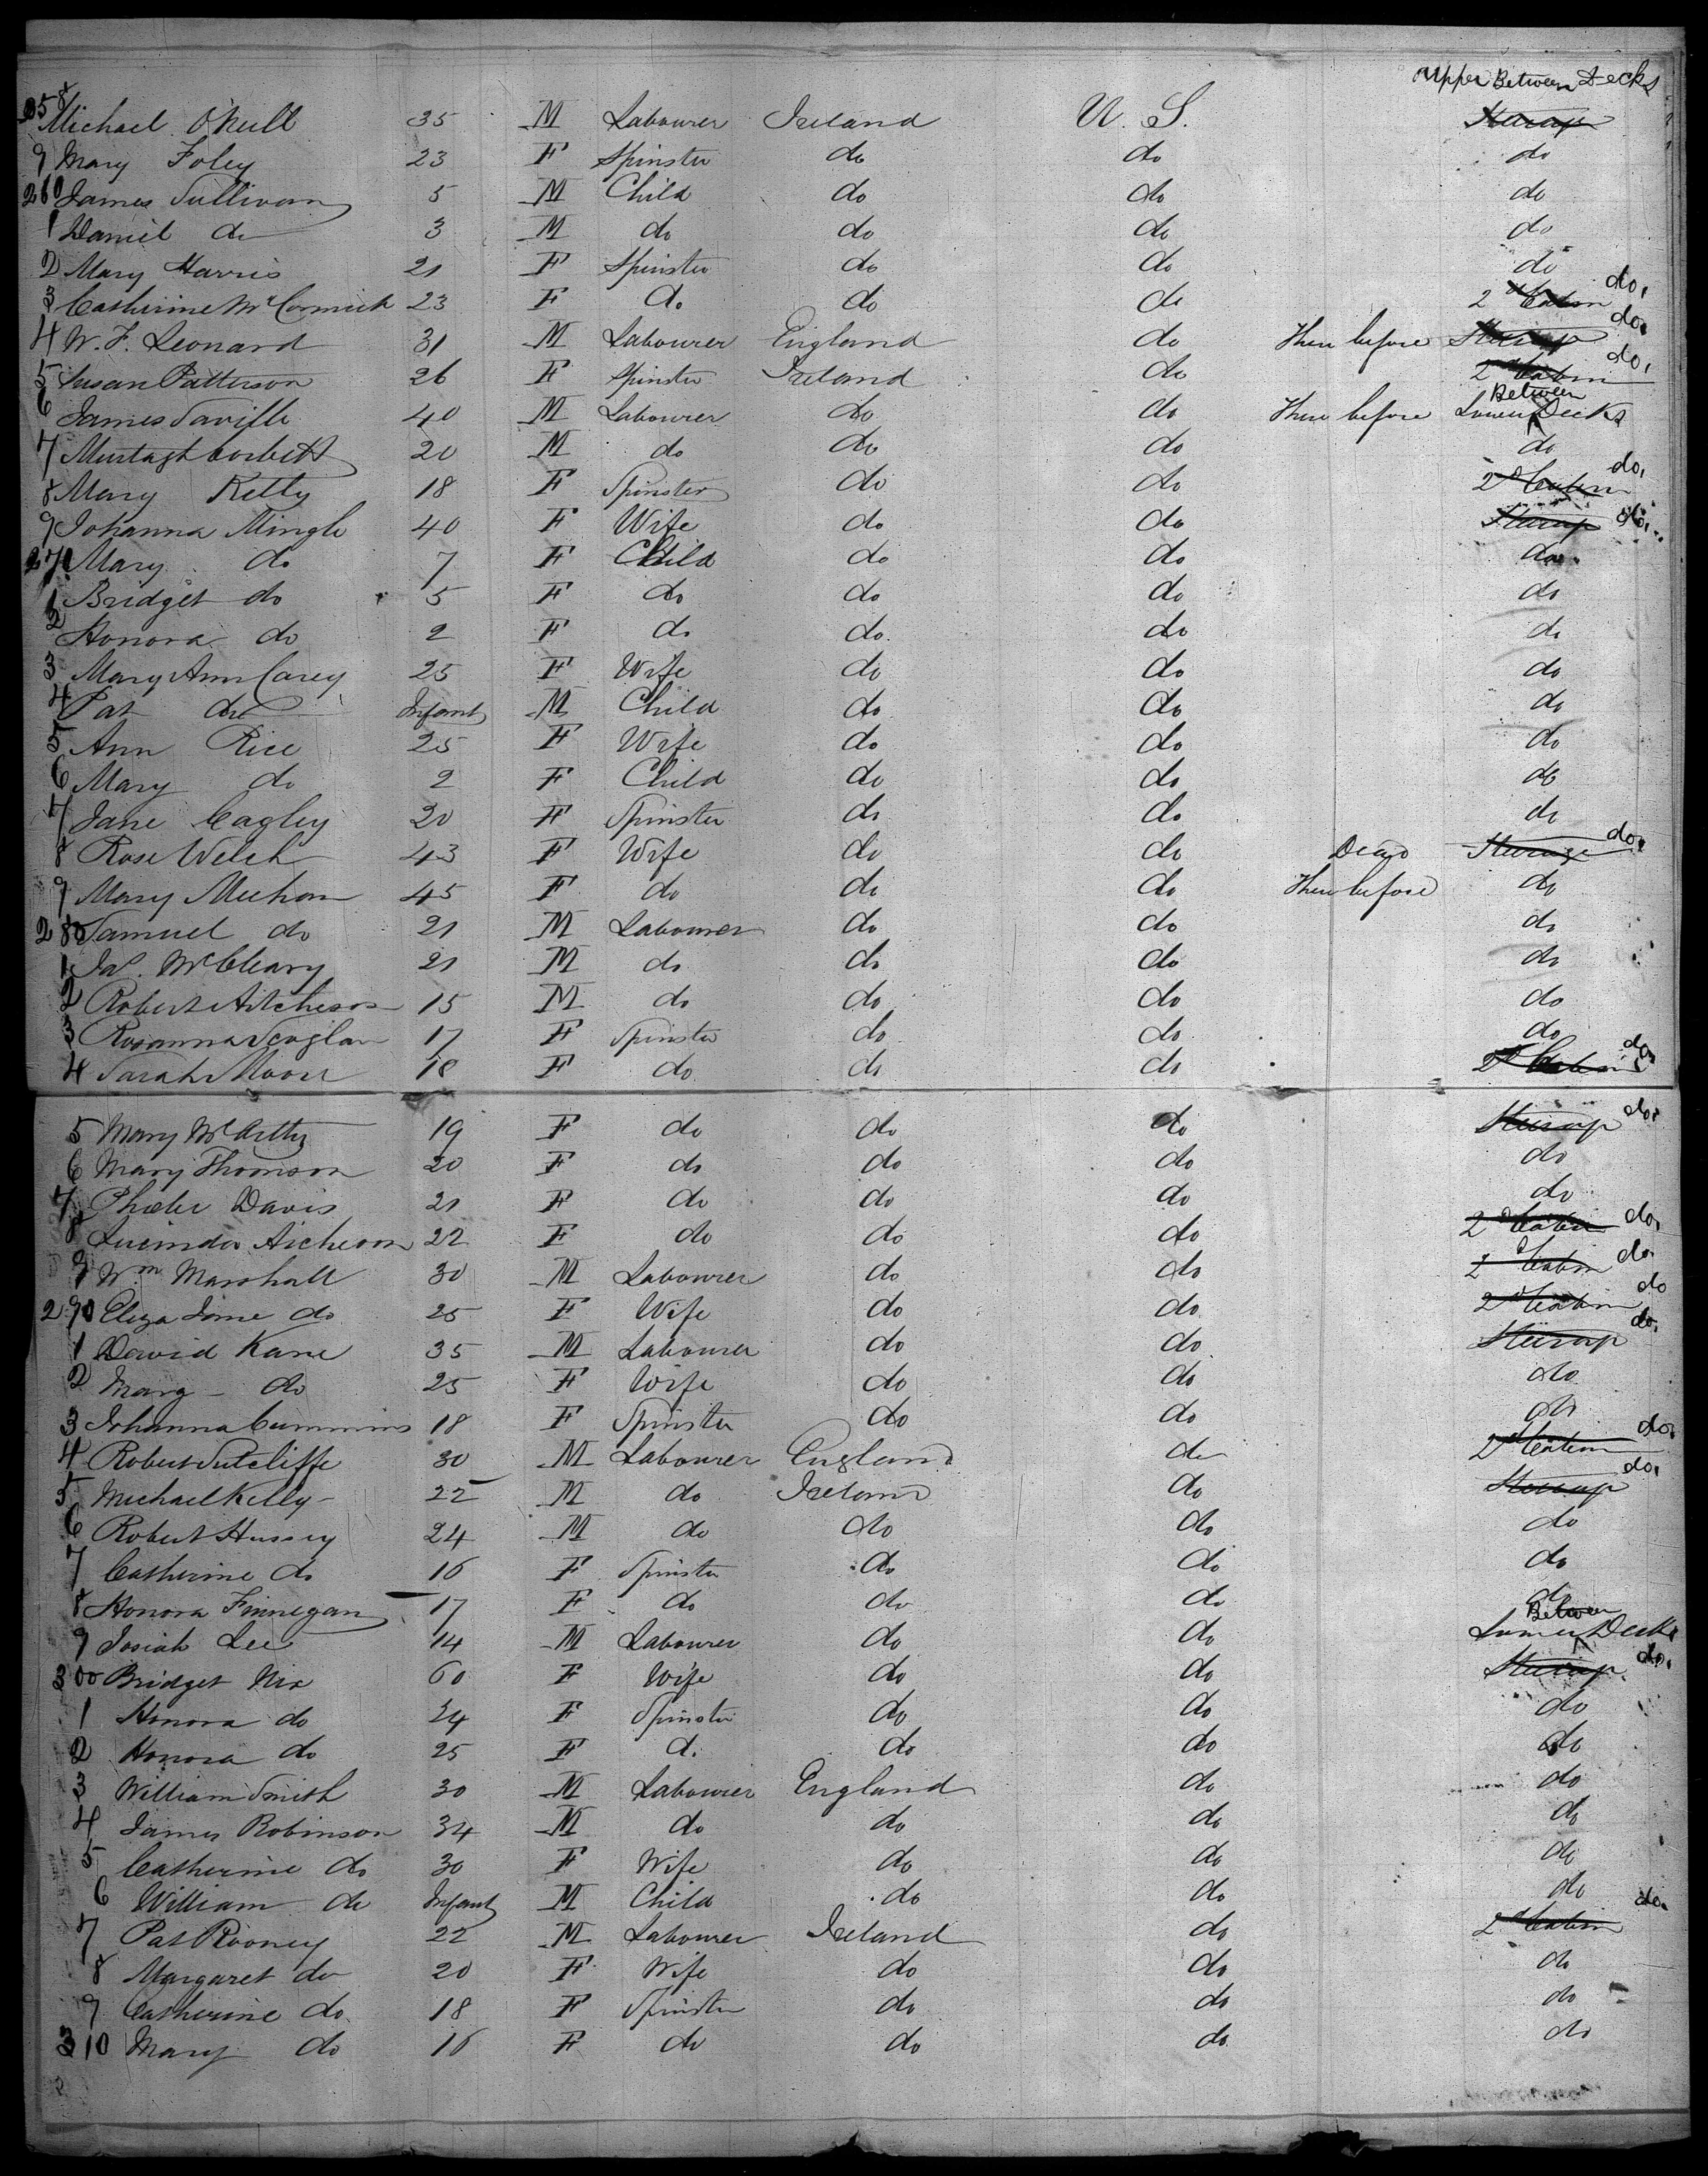 Upper Between Decks
258 Michael O'Neill 35 M Labourer Ireland U. S. Steerage
9 Mary Foley 23 F Spinster do do do
260 James Sullivan 5 M Child do do do
1 Daniel do 3 M do do do do
2 Mary Harris 21 F Spinster do do do
3 Catherine McCormick 23 F do do do 2d Cabin do.
4 W. F. Leonard 31 M Labourer England do There before Steerage do.
5 Susan Patterson 26 F Spinster Ireland do 2d Cabin do,
6 James Saville 40 M Labourer do do There before Lower Between Decks
7 Murtagh Corbett 20 M do do do do
8 Mary Kelly 18 F Spinster do do 2d Cabin do,
9 Johanna Mingle 40 F Wife do do Steerage do,
270 Mary do 7 F Child do do do
1 Bridget do 5 F do do do do
2 Honora do 2 F do do do do
3 Mary Ann Carey 25 F Wife do do do
4 Pat do Infant M Child do do do
5 Ann Rice 25 F Wife do do do
6 Mary do 2 F Child do do do
7 Jane Cagley 20 F Spinster do do do
8 Rose Welch 43 F Wife do do Dead Steerage do.
9 Mary Meehan 45 F do do do There before do
280 Samuel do 21 M Labourer do do do
1 Jas. McCleary 21 M do do do do
2 Robert Aitcheson 15 M do do do do
3 Rosanna 17 F Spinster do do do
4 Sarah Moore 18 F do do do 2d Cabin do
5 Mary McArthy 19 F do do do Steerage do.
6 Mary Thomson 20 F do do do do
7 Phoebe Davis 21 F do do do do
8 Lucinda Aicheson 22 F do do do 2d Cabin do,
9 Wm Marshall 30 M Labourer do do 2d Cabin do.
290 Eliza Jane do 25 F Wife do do 2d Cabin do
1 David Kane 35 M Labourer do do Steerage do.
2 Mary - do 25 F Wife do do do
3 Johanna Cummins 18 F Spinster do do do
4 Robert Sutcliffe 30 M Labourer England do 2d Cabin do.
5 Michael Kelly 22 M do Ireland do Steerage do,
6 Robert Hussey 24 M do do do do
7 Catherine do 16 F Spinster do do do
8 Honora Finnegan 17 F do do do do
9 Josiah Lee 14 M Labourer do do Lower Between Decks
300 Bridget Nix 60 F Wife do do Steerage do.
1 Honora do 24 F Spinster do do do
2 Honora do 25 F do do do do
3 William Smith 30 M Labourer England do do
4 James Robinson 34 M do do do do
5 Catherine do 30 F Wife do do do
6 William do Infant M Child do do do
7 Pat Rooney 22 M Labourer Ireland do 2d Cabin do.
8 Margaret do 20 F Wife do do do
9 Catherine do 18 F Spinster do do do
310 Mary do 16 F do do do do